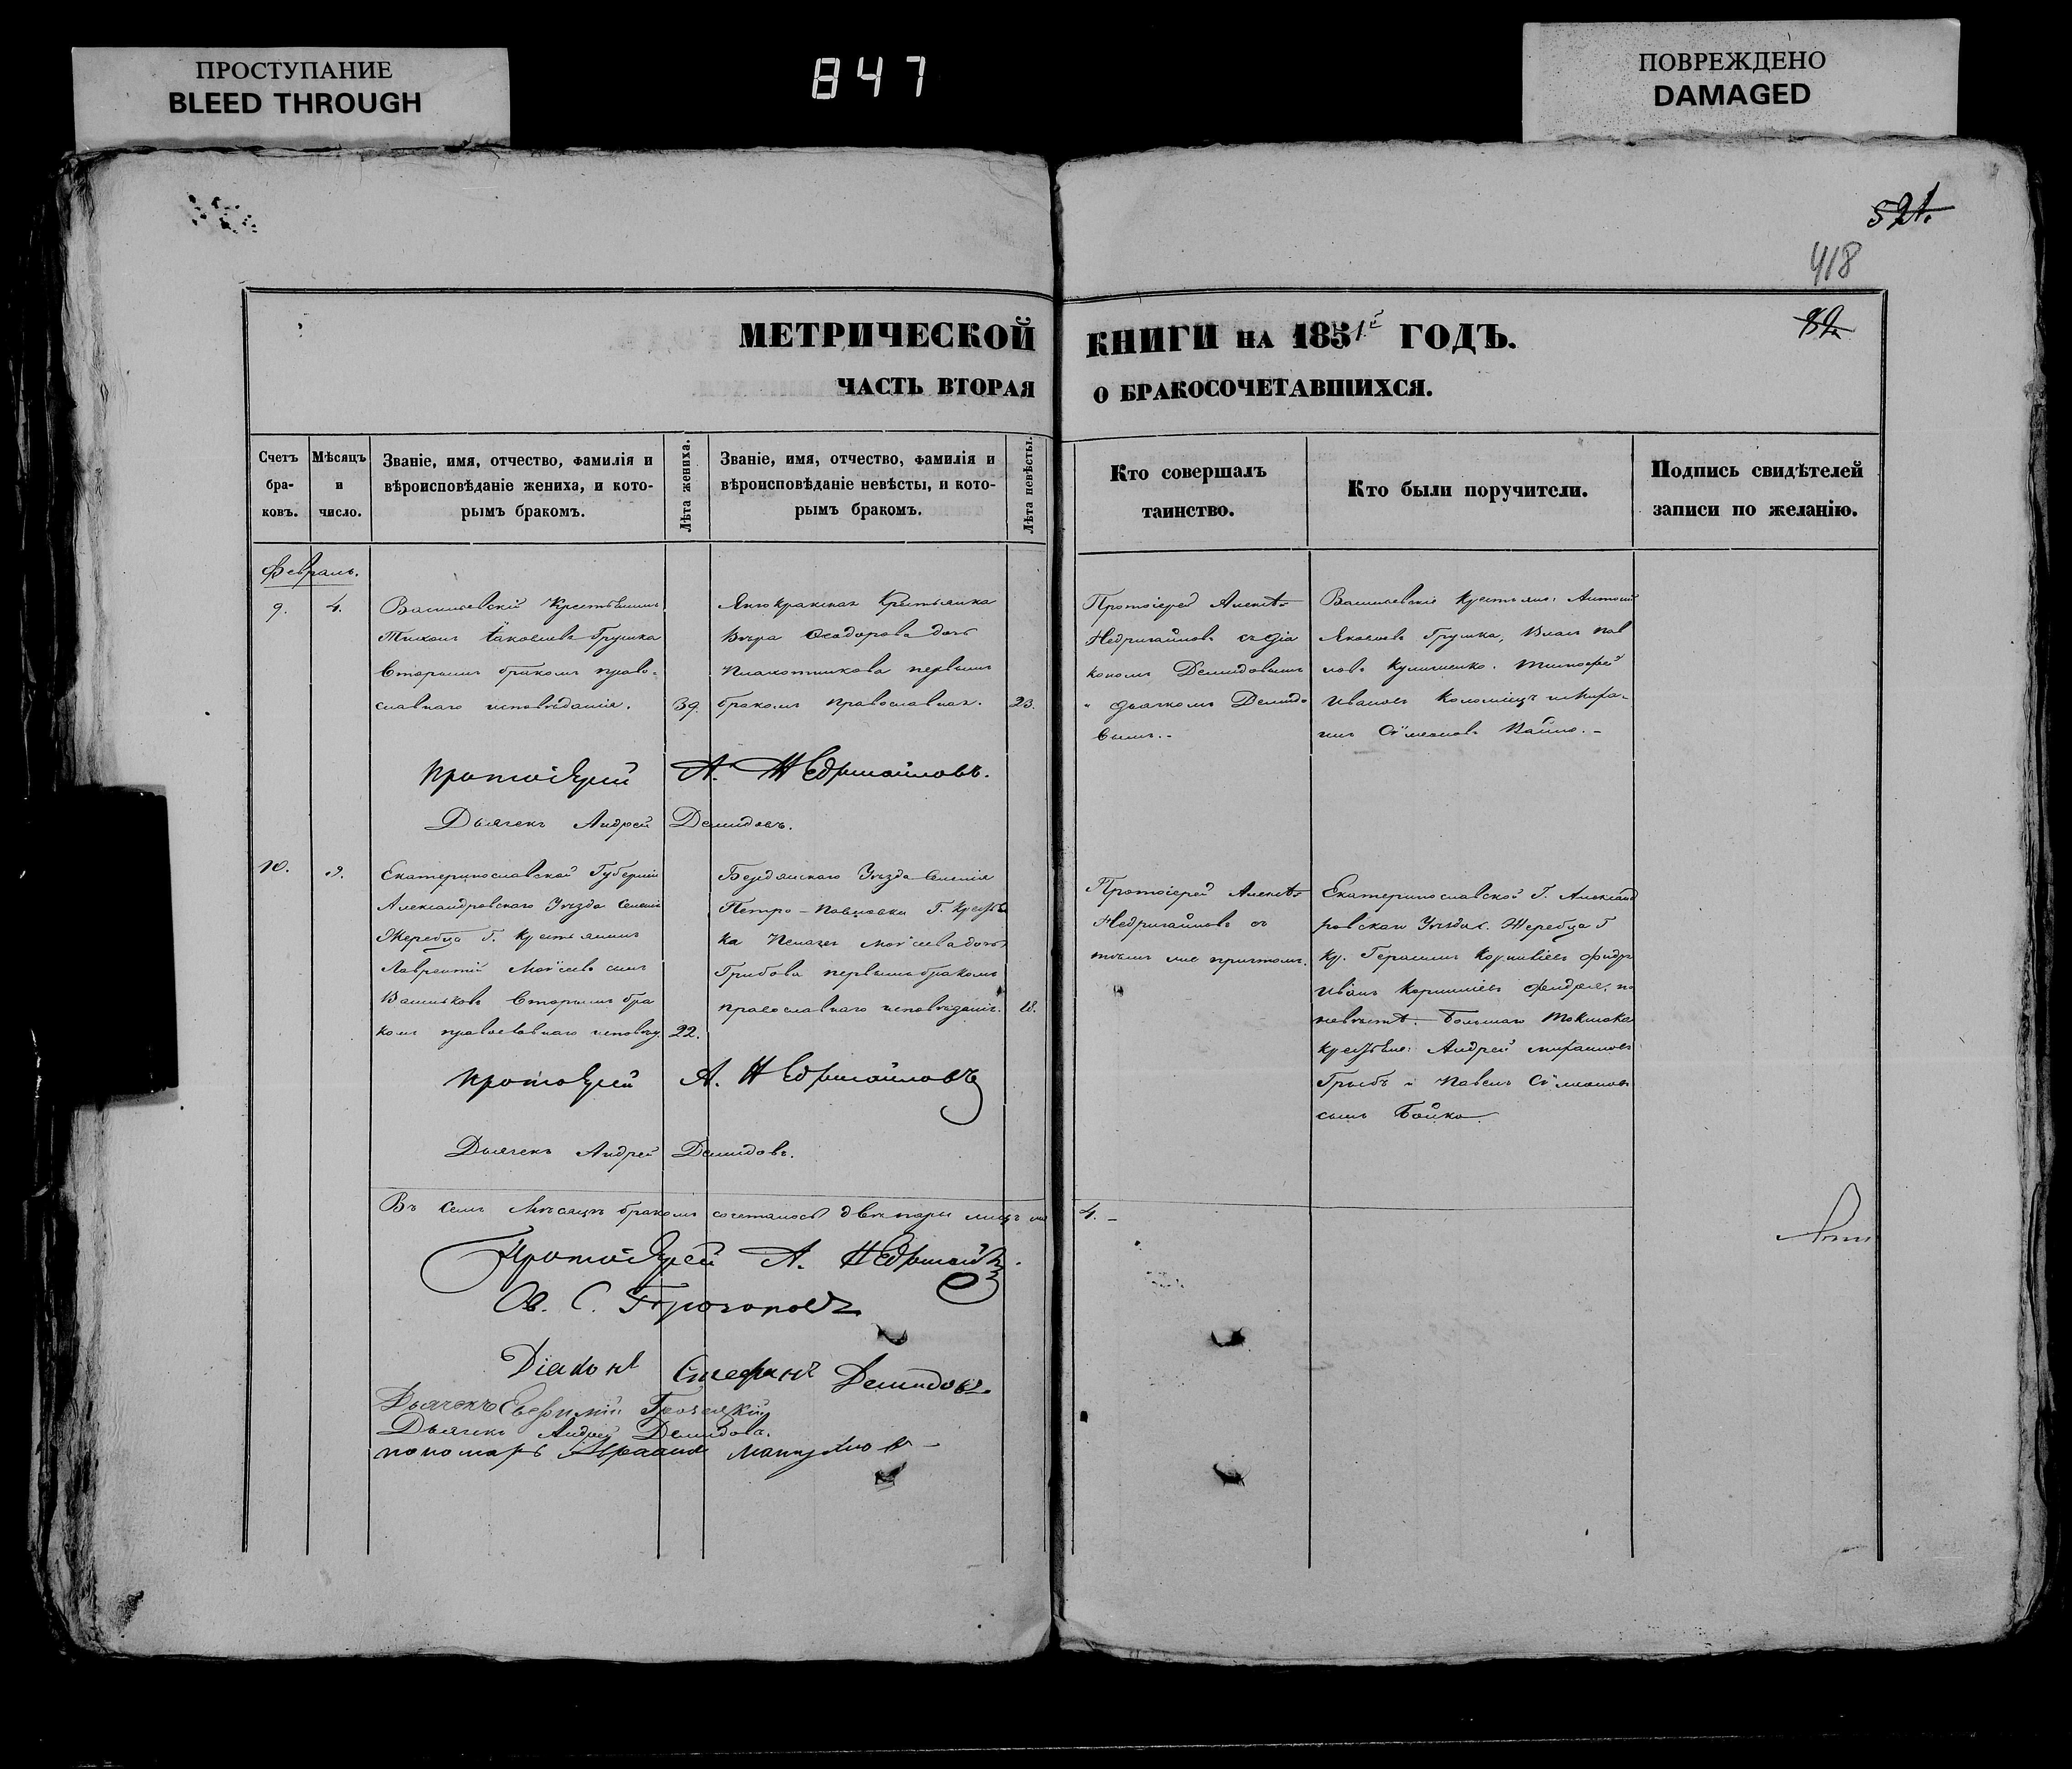 ПРОСТУПАНИЕ
BLEED THROUGH
847
ПОВРЕЖДЕНО
DAMAGED
521.
418
МЕТРИЧЕСКОЙ КНИГИ НА 1851й ГОДЪ.
ЧАСТЬ ВТОРАЯ О БРАКОСОЧЕТАВШИХСЯ.
Счетъ бра-ковъ.
Мѣсяцъ и число.
Званіе, имя, отчество, фамилія и
вѣроисповѣданіе жениха, и кото-
рымъ бракомъ.
Лѣта жениха.
Званіе, имя, отчество, фамилія и
вѣроисповѣданіе невѣсты, и кото-
рымъ бракомъ.
Лѣта невѣсты.
Кто совершалъ
таинство.
Кто были поручители.
Подпись свидѣтелей
записи по желанію.
Февраль.
9.
4.
Васильевскій Крестьянинъ
Тихонъ Іаковлевъ Грушка
вторымъ бракомъ право-
славнаго исповѣданія.
39.
Крестьянка
Вѣра Ѳеодорова дочь
Плахотникова первымъ
бракомъ православнаг.
23.
Протоіерей Алексѣй
Недригайловъ съ діа
кономъ Демидовымъ
и дьячкомъ Демидо
вымъ.-
Васильевскіе крестьяне: Антоній
Яковлевъ Грушка, Власъ Пав
ловъ Тимофей
Ивановъ Коломіецъ и Мира-
нъ Сѵмеоновъ
Протоіерей А. Недригайловъ.
Дьячекъ Андрей Демидовъ.
10.
9.
Екатеринославской Губерніи
Александровскаго Уѣзда Селенія
Жеребца Г. Крестьянинъ
Лаврентій Моѵсеевъ сынъ
Васильковъ вторымъ бра
комъ православнаго исповѣд.
22.
Бердянскаго Уѣзда Селенія
Петро-Павловки Г. Крестьян
ка Пелагея Моѵсеева дочь
Грибова первымъ бракомъ
православнаго исповѣданія.
18.
Протоіерей Алексѣй
Недригайловъ съ
тѣмъ же причтомъ.
Екатеринославской Г. Александ
ровскаго Уѣзда с. Жеребца Г
кр. Герасимъ Корниліевъ
Иванъ Корниліевъ по
невѣстѣ. Большаго Токмака
крестьяне: Андрей
Грыбъ и Павелъ Сѵмеоновъ
сынъ Бойко.
Протоіерей А. Недригайловъ
Дьячекъ Андрей Демидовъ.
Въ семъ мѣсяцѣ бракомъ сочеталось двѣ пары лицъ
4.-
Протоіерей А. Недригайловъ.
Св. С. Григоровъ
Діаконъ Стефанъ Демидовъ.
Дьячекъ Евфимій
Дьячекъ Андрей Демидовъ.
пономарь